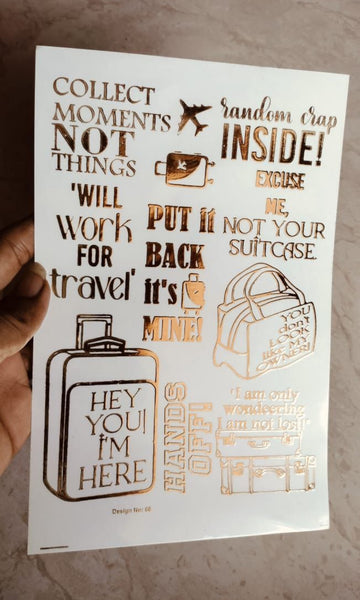 COLLECT
MOMENTS
NOT
THINGS
random crap
INSIDE!
EXCUSE
ME,
NOT YOUR
SUITCASE.
'WILL
work
FOR
travel'
PUT it
BACK
it's
MINE!
YOU
don't
LOOK
LIKE MY
OWNER!
HEY
YOU!
I'M
HERE
HANDS
OFF!
'I am only
wondeering
I am not lost!'
Design No: 66